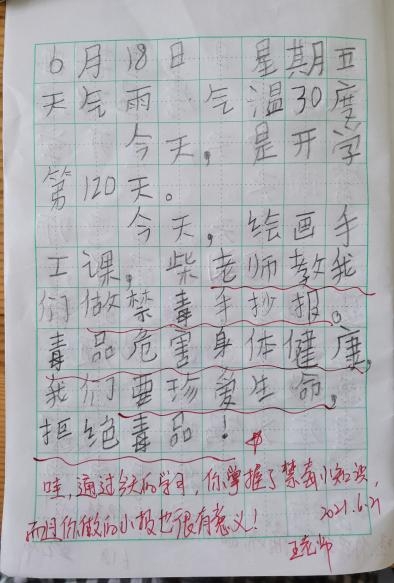 6月18日 星期五
天气雨 气温30度
今天，是开学
第120天。
今天，绘画手
工课，柴老师教我
们做禁毒手抄报。
毒品危害身体健康，
我们要珍爱生命，
拒绝毒品！
哇，通过今天的学习，你掌握了禁毒小知识，
而且你做的小报也很有意义！ 2021.6.21
王老师